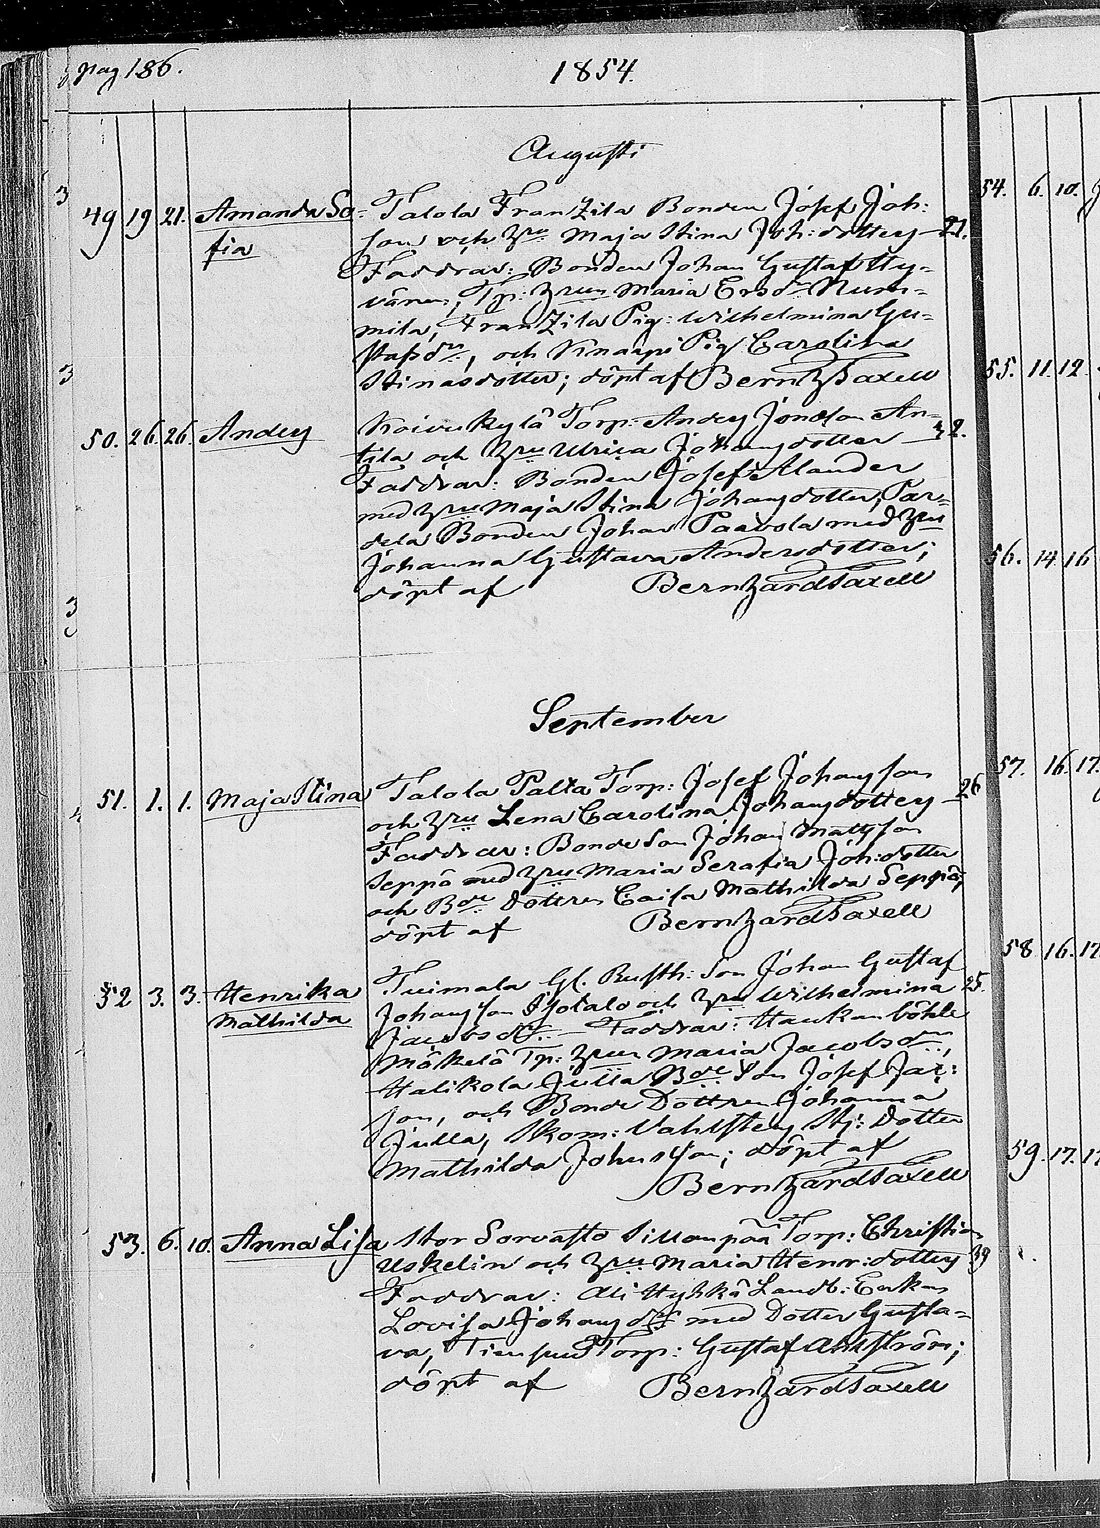 pag 186.
1854.
Augusti
49 19 21. Amanda So= Talola Franzila Bonden Josef Joh:
fia son och Hru Maja Stina Joh:dotter 21.
Faddrar: Bonden Johan Gustaf Hy=
vänen, Tp: Hrun Maria Ersdr Num=
mila, Franzila Pig: Wilhelmina Gu=
stafsdr, och Pig Carolina
Stinasdotter; döpt af Bernh Saxell
50. 26. 26. Anders Koivukylä Torp: Anders Jonasson An=
tila och Hru Ulrica Johansdotter 42.
Faddrar: Bonden Josef Alander
med Hru Maja Stina Johansdotter, Par=
dela Bonden Johan Paavola med Hru
Johanna Gustava Andersdotter;
döpt af Bernhard Saxell
September
51. 1. 1. Maja Stina Talola Palta Torp: Josef Johansson
och Hru Lena Carolina Johansdotter 26
Faddrar: Bonde Son Johan Mattsson
Seppä med Hru Maria Serafia Joh:dotter
och Bde Dottren Caisa Mathilda Seppä;
döpt af Bernhard Saxell
52 3. 3. Henrika Tuimala Gl. Rusth: Son Johan Gustaf
Mathilda Johansson och Hru Wilhelmina 25.
Jacobsdr. Faddrar: Haukanböhle
Mäkelä Tp: Hrun Maria Jacobsdr,
Halikola Julla Bde Son Josef Jac:
son, och Bonde Dottren Johanna
Julla, Skom: Vahlsten Stj: Dotter
Mathilda Johnsson; döpt af
Bernhard Saxell
53. 6. 10. Anna Lisa Stor Sorvasto Sillanpää Torp: Christian
Uskelin och Hru Maria Henr:dotter 39
Faddrar: Ali Hyhkä Landb: Enkan
Lovisa Johansdr med Dotter Gusta=
va, Torp: Gustaf Ahlström;
döpt af Bernhard Saxell
54. 6. 10.
55. 11. 12.
56. 14. 16
57. 16. 17.
58. 16. 17
59. 17. 17